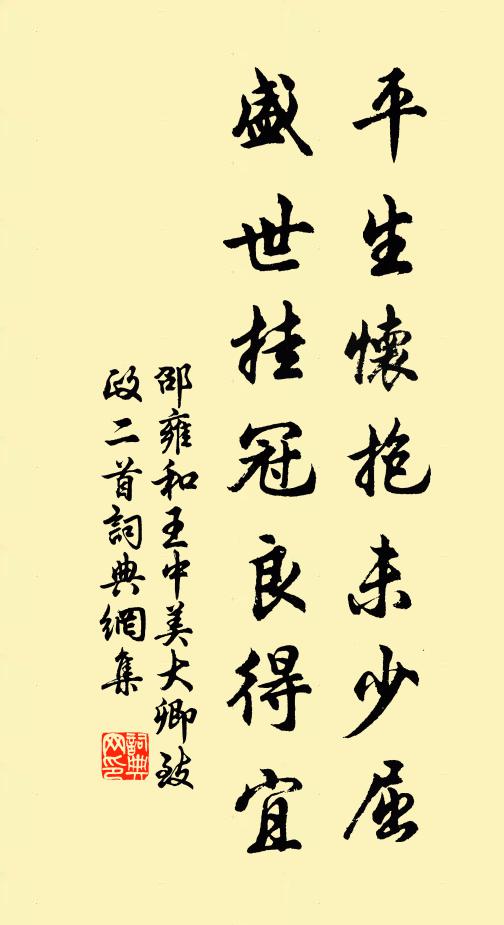 平生懷抱未少屈
盛世挂冠良得宜
邵雍和王中美大卿致
政二首詞典網集
詞典
网印